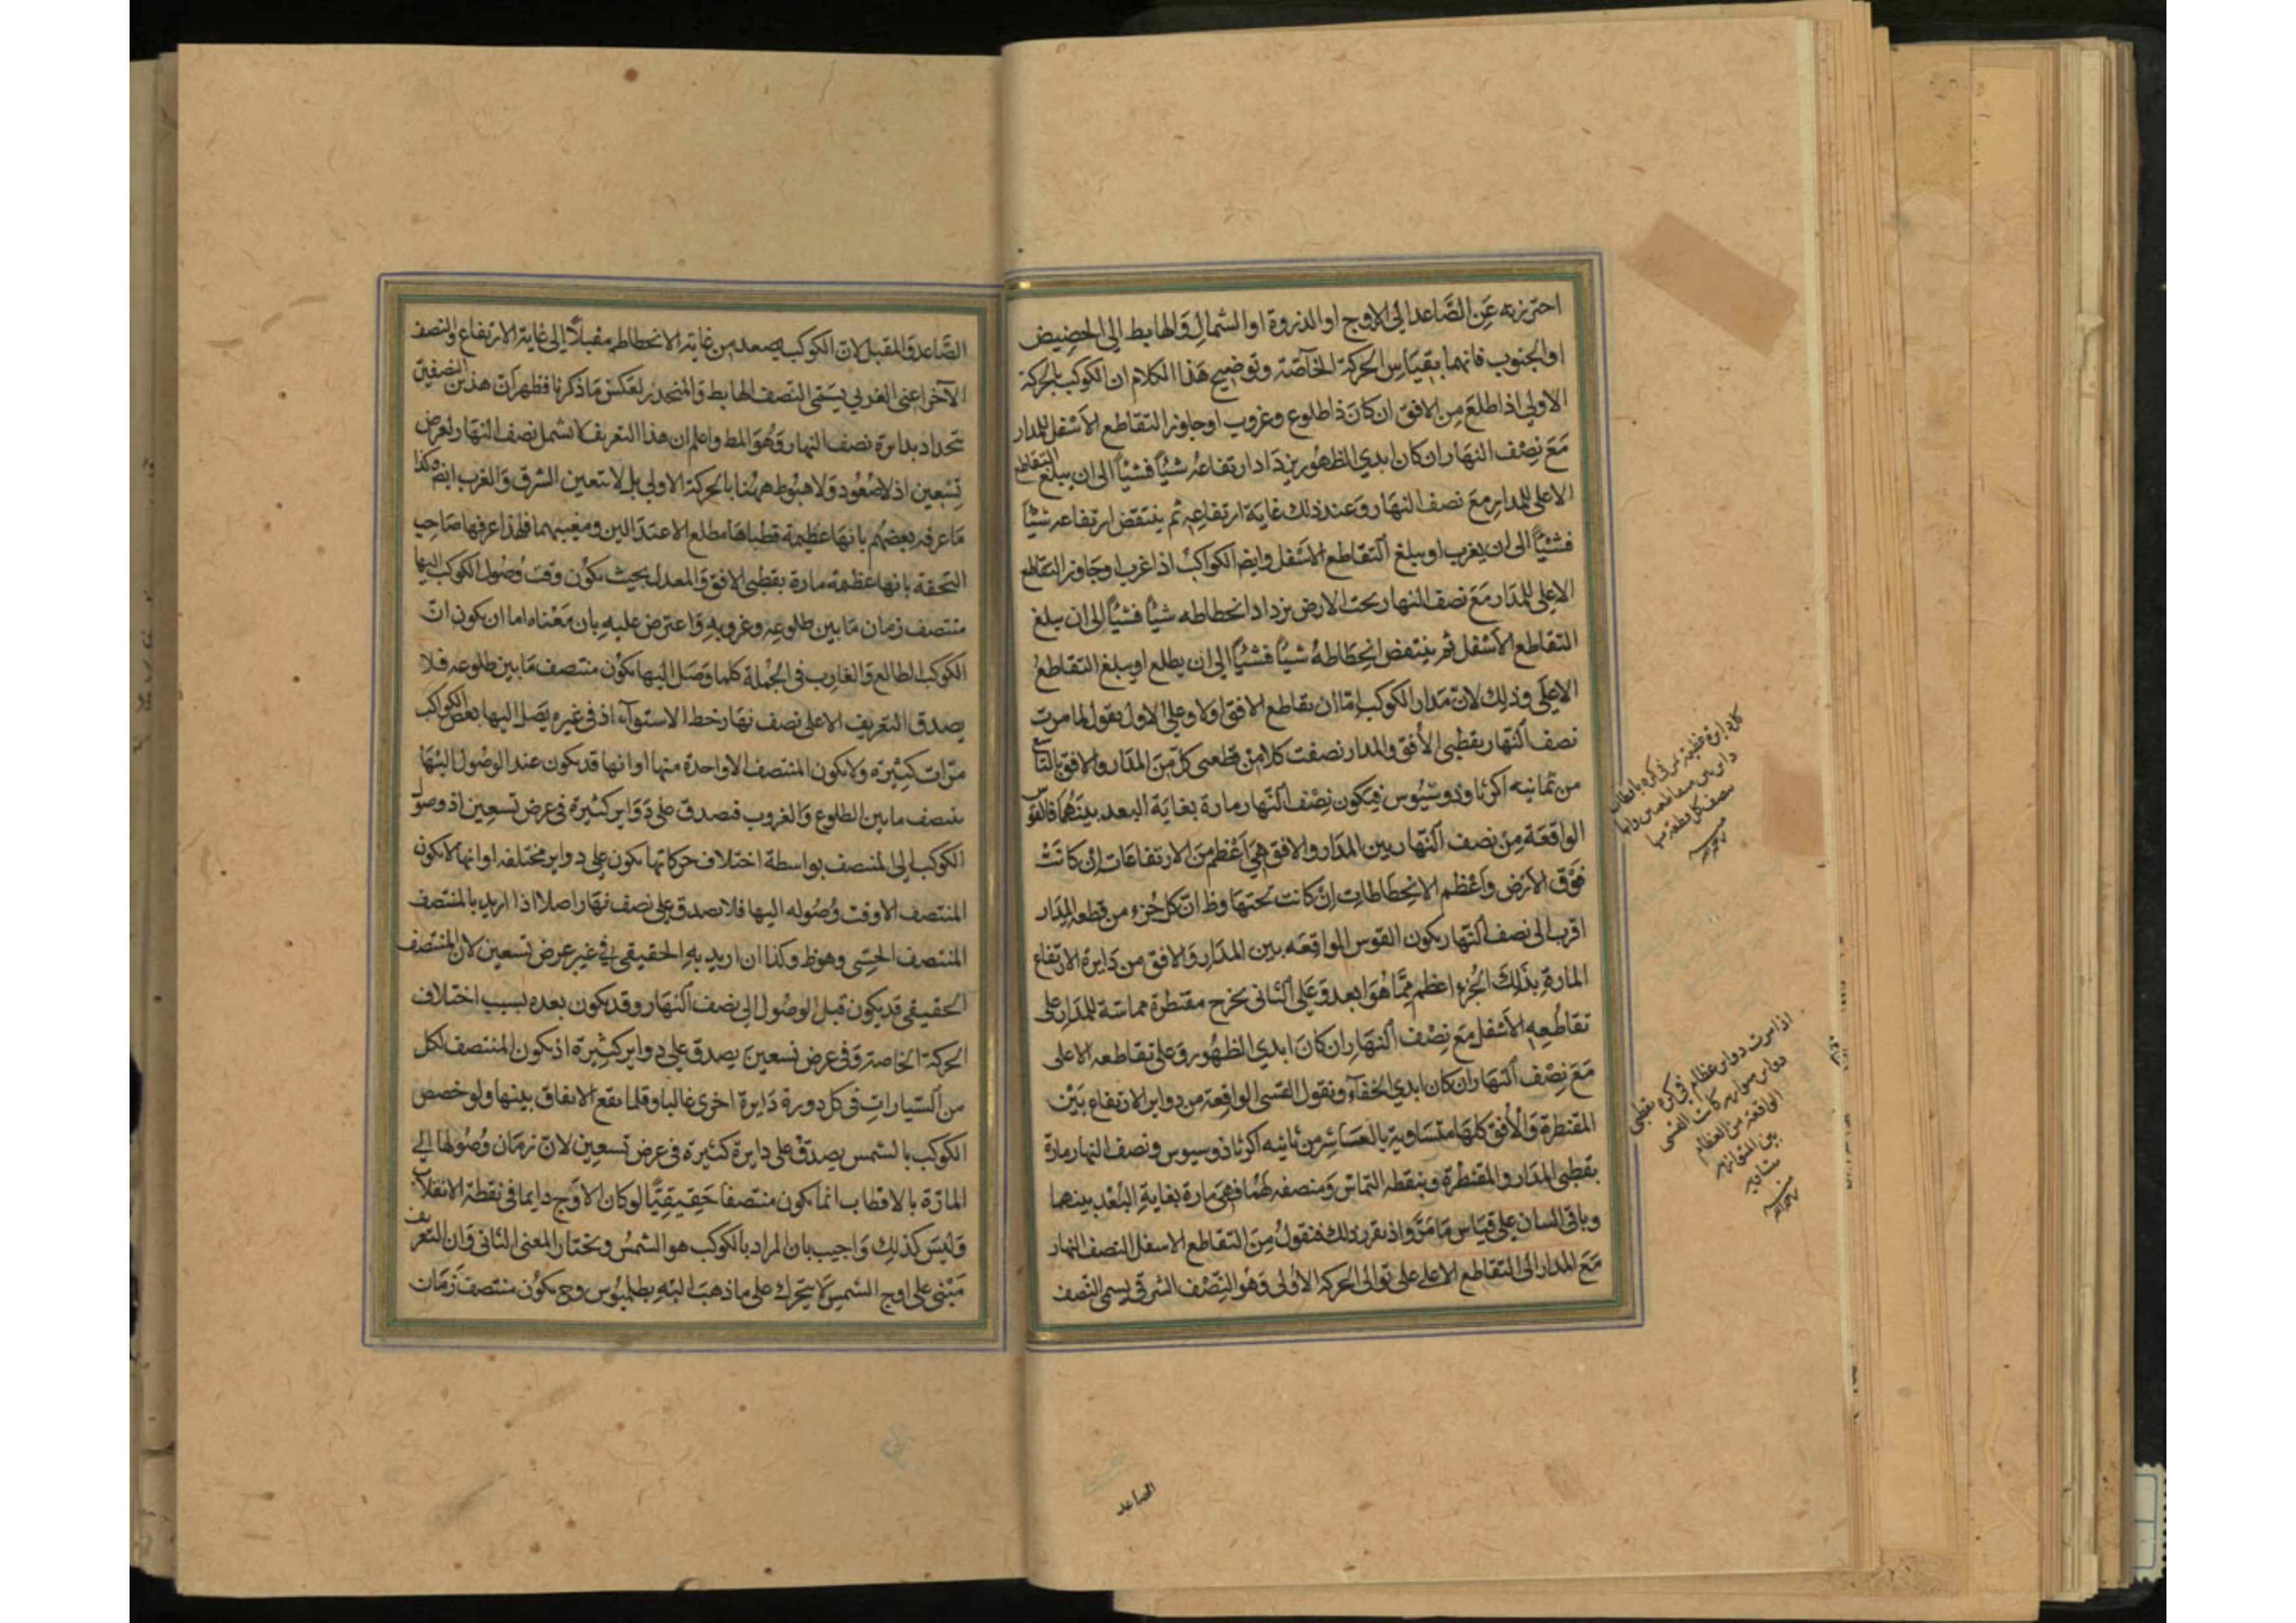 احترز به عَنِ الصَّاعد الى الاوج او الذروة او الشمالِ وَالهابط الى الحضِيض
او الجنوب فانهما بقيَاسِ الحركة الخآصّة وتوضِيح هَذا الكلام ان الكوكب بالحركة
الاولي اذا طلعَ مِن الافق ان كانَ ذا طلوع وغروب اوجاوز التقاطع الاَسْفل للمدار
مَعَ نِصْف النهاران كان ابدي الظهُور يزدَاد ارتفاعُه شيئاً فشيئاً الى ان يبلغ التقاطع
الاعلى للمدارِ معَ نصف النهَار وَعند ذلك غايَة ارتفاعِهِ ثم ينتقض ارتفاعه شيئاً
فشيئاً الى ان يغرب او يبلغ التقاطع الاسْفل وايض الكواكبُ اذا غرب اوجَاوز التقاطع
الاعلى للمدَار مَعَ نصف النهار تحت الارض يزداد انحطاطه شيئاً فشيئاً الى ان يبلغ
التقاطع الاَسْفل ثم ينتقض انحِطَاطهُ شيئاً فشيئاً الى ان يطلع او يبلغ التقاطعُ
الاعلَى وذلِك لانّ مَدار الكوكب امّا ان يقاطع الافق اولا وعلى الاول يقول لما مرت
نصف اَلنّهار بقطبى الأفق والمدار نصفت كلا من قطعتى كلّ مِنَ المدَار والافق بالتاسع
من ثمانيه اكرثاودوسْيُوس فيَكون نِصْف اَلنّهار مارة بغايَة البعد بينَهُما فالقوس
الواقعَة مِنْ نصف اَلنّهار بين المدَار والافق هِيَ اَعْظم مِنَ الارتفاعَات اِن كانَتْ
فَوْق الاَرْض واَعْظم الانحِطَاطاتِ اِنْ كانت تحتهَا وظ انّ كل جُزءٍ من قطعه المِدَار
اقرب الى نصف اَلنّهار يكون القوس الواقعَه بين المدَار وَالافق من دَايرة الارتفاع
المارةِ بذَلِكَ الجُزءِ اعظم مِمَّا هُوَ ابعد وَعَلى اَلثانى نخرح مقنطرة مماسّة للمدَارِ على
تقاطُعِهِ الاَسْفل مَعَ نِصْف اَلنهَارِ ان كانَ ابدي الظهُور وَعَلى تقاطعه الاعلى
مَعَ نِصْف اَلنهَار ان كان ابدي الخفآء ونقول القسى الواقعِة من دواير الارتفاع بَيْن
المقنطرة وَالأفق كلهَا متسَاوية بالعسَاشرِ من ثانيه اكرثاذوسيوس ونصف النهار مارة
بقطبى المدَار والمقنطرة وبنقطه التماسّ وَمنصفه لهُما فهىَ مَارة بغايةِ البُعْدِ بينهما
وباقى السان على قيَاس مَا مَرَّ واذ تقرر ذلك فنقولُ مِنَ التقاطع الاسفل النصف النهار
مَعَ المدار الى التقاطع الاعلى على توالى الحركه الأولى وَهُو النِّصْف الشرقى يسمى النّصف
كل دايرة عظيمة
نصف كل قطعة منها
اذا مرت دواير عظام فى كره بقطبى
دواير متوازيه كانت القسى
الواقعة من العظام
بين المتوازيه
متساويه
الصاعد
الصَّاعد وَالمقبل لانّ الكوكب يصعد من غاية الانحطاط مقبلاً الى غاية الارتفاع والنصف
الآخر اعنى الغربي يسَمّى النّصف الهابط وَالمنحدر لعكس مَا ذكرنا فظهر انّ هذين النصفين
يتحداد بدايرة نصف النهار وَهُوَ المط واعلم ان هذا التعريف لا تشمل نصف النّهار لعرض
تِسْعِين اذ لاصُعُود وَلا هبُوط هٰهُنا بالحركة الاولى بل لا تتعين الشرق وَالغرب ايض وكذا
مَا عرفه بعضهُم بانهَا عَظيمة قطبَاهَا مطلع الاعتدَالين ومغيبهما فلهذا عرفها صَاحِب
التحفة بانها عظيمة مارة بقطبى الافق وَالمعدل بحيث يكوُن وقت وُصُول الكوكب اليها
منتصف زمَان مَا بين طلوعِه وغروبه وَاعترض عليهِ بان مَعْناه اما ان يكون انّ
الكوكب الطالع وَالغارِب فى الجُملة كلما وَصَل اليها يكوُن منتصف مَا بين طلوعه فلا
يصدق التعريف الا على نصف نهار خط الاستوآء اذ فى غيره يَصَل اليها بعض الكواكب
مرّات كبِيْرة ولا يكون المنتصف الا واحدة منها او انها قد يكون عند الوصُول اليْهَا
ينصف مابين الطلوع وَالغروب فيصدق على دَوَاير كثيرة فى عرض تسعِين اذ وصول
الكوكب الى المنصف بواسطة اختلاف حركاتها يكون على دواير مختلفه او انها لا يكون
المنتصف الا وقت وُصُوله اليها فلا يصدق على نصف نهَار اصلا اذا اريد بالمنتصف
المنتصف الحسّى وهو ظ وكذا ان اريد بهِ الحقيقى فى غير عرض تسعين لان المنتصف
الحقيقى قد يكون قبل الوصُول الى نصف اَلنهَار وقد يكون بعده بسبب اختلاف
الحركة الخاصة وَفى عرض تسعينَ يصدق على دواير كثِيْرة اذ يكون المنتصف لكل
من السّيارات فى كل دورة دَايرة اخرى غالبا وقلما يقع الاتفاق بينها ولو خصص
الكوكب بالشمس يصدق على دايرة كثيرة فى عرض تسعِين لانّ زمَان وُصُولها الى
المارّة بالاقطاب انما يكون منتصفا حَقِيقيًّا لو كان الاوْج دايما فى نقطة الانقلاب
وَليْسَ كذلِك وَاجيب بان المراد بالكوكب هو الشمسُ ونختار المعنى الثانى وَان التعريف
مَبْنى على اوج الشمس لا يتحرك على ما ذهبَ اليْهِ بطلميُوس وح يكوُن منتصف زمَان